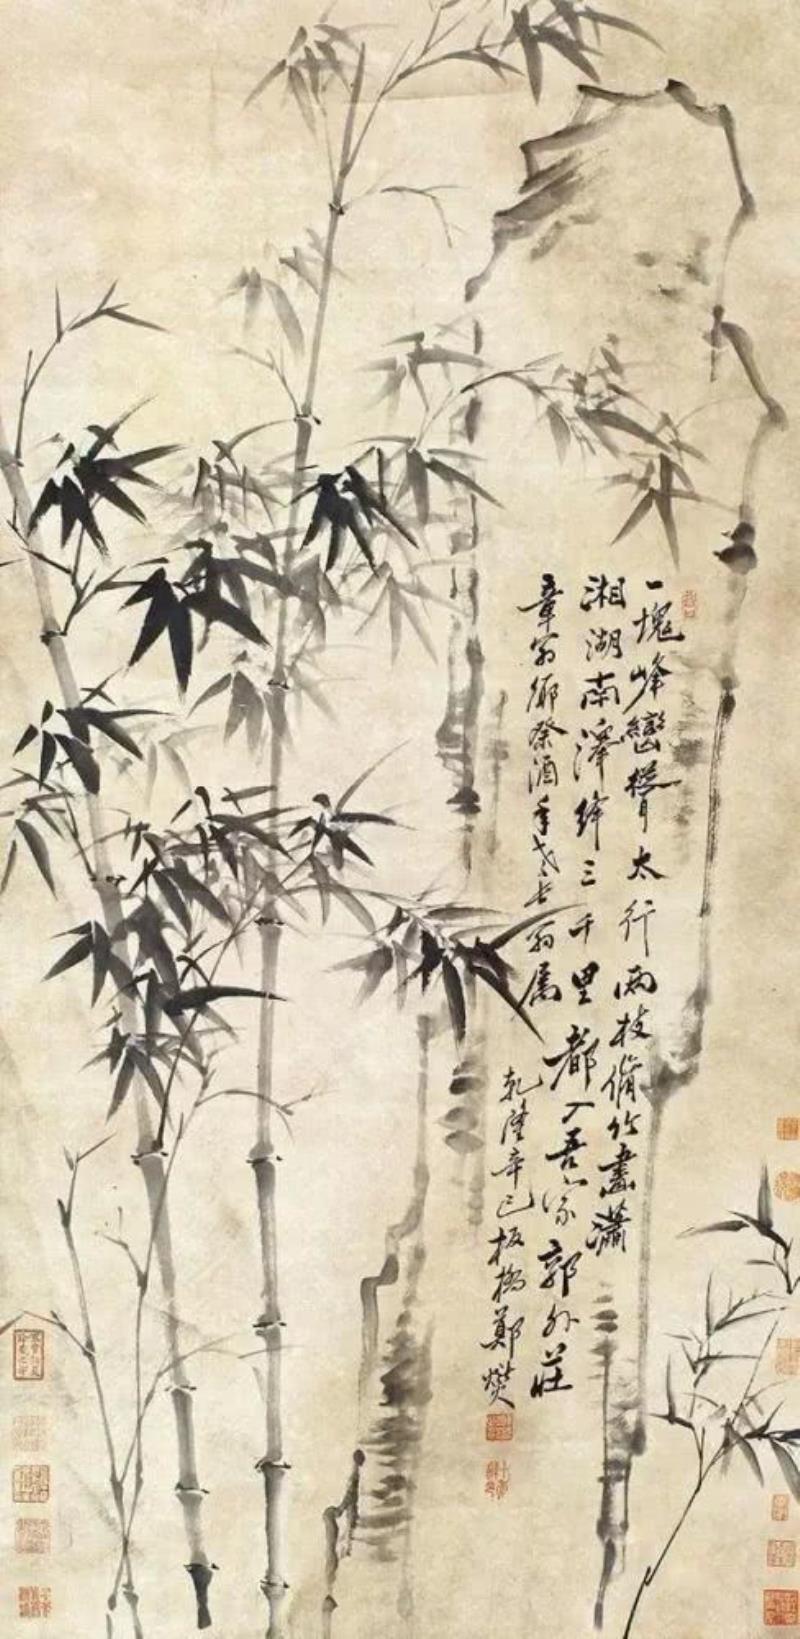 一塊峰巒聳太行兩枝脩竹畫瀟
湘湖南澤絳三千里都入吾家郭外莊
章翁鄉祭酒年老長翁属
乾隆辛巳板橋鄭燮